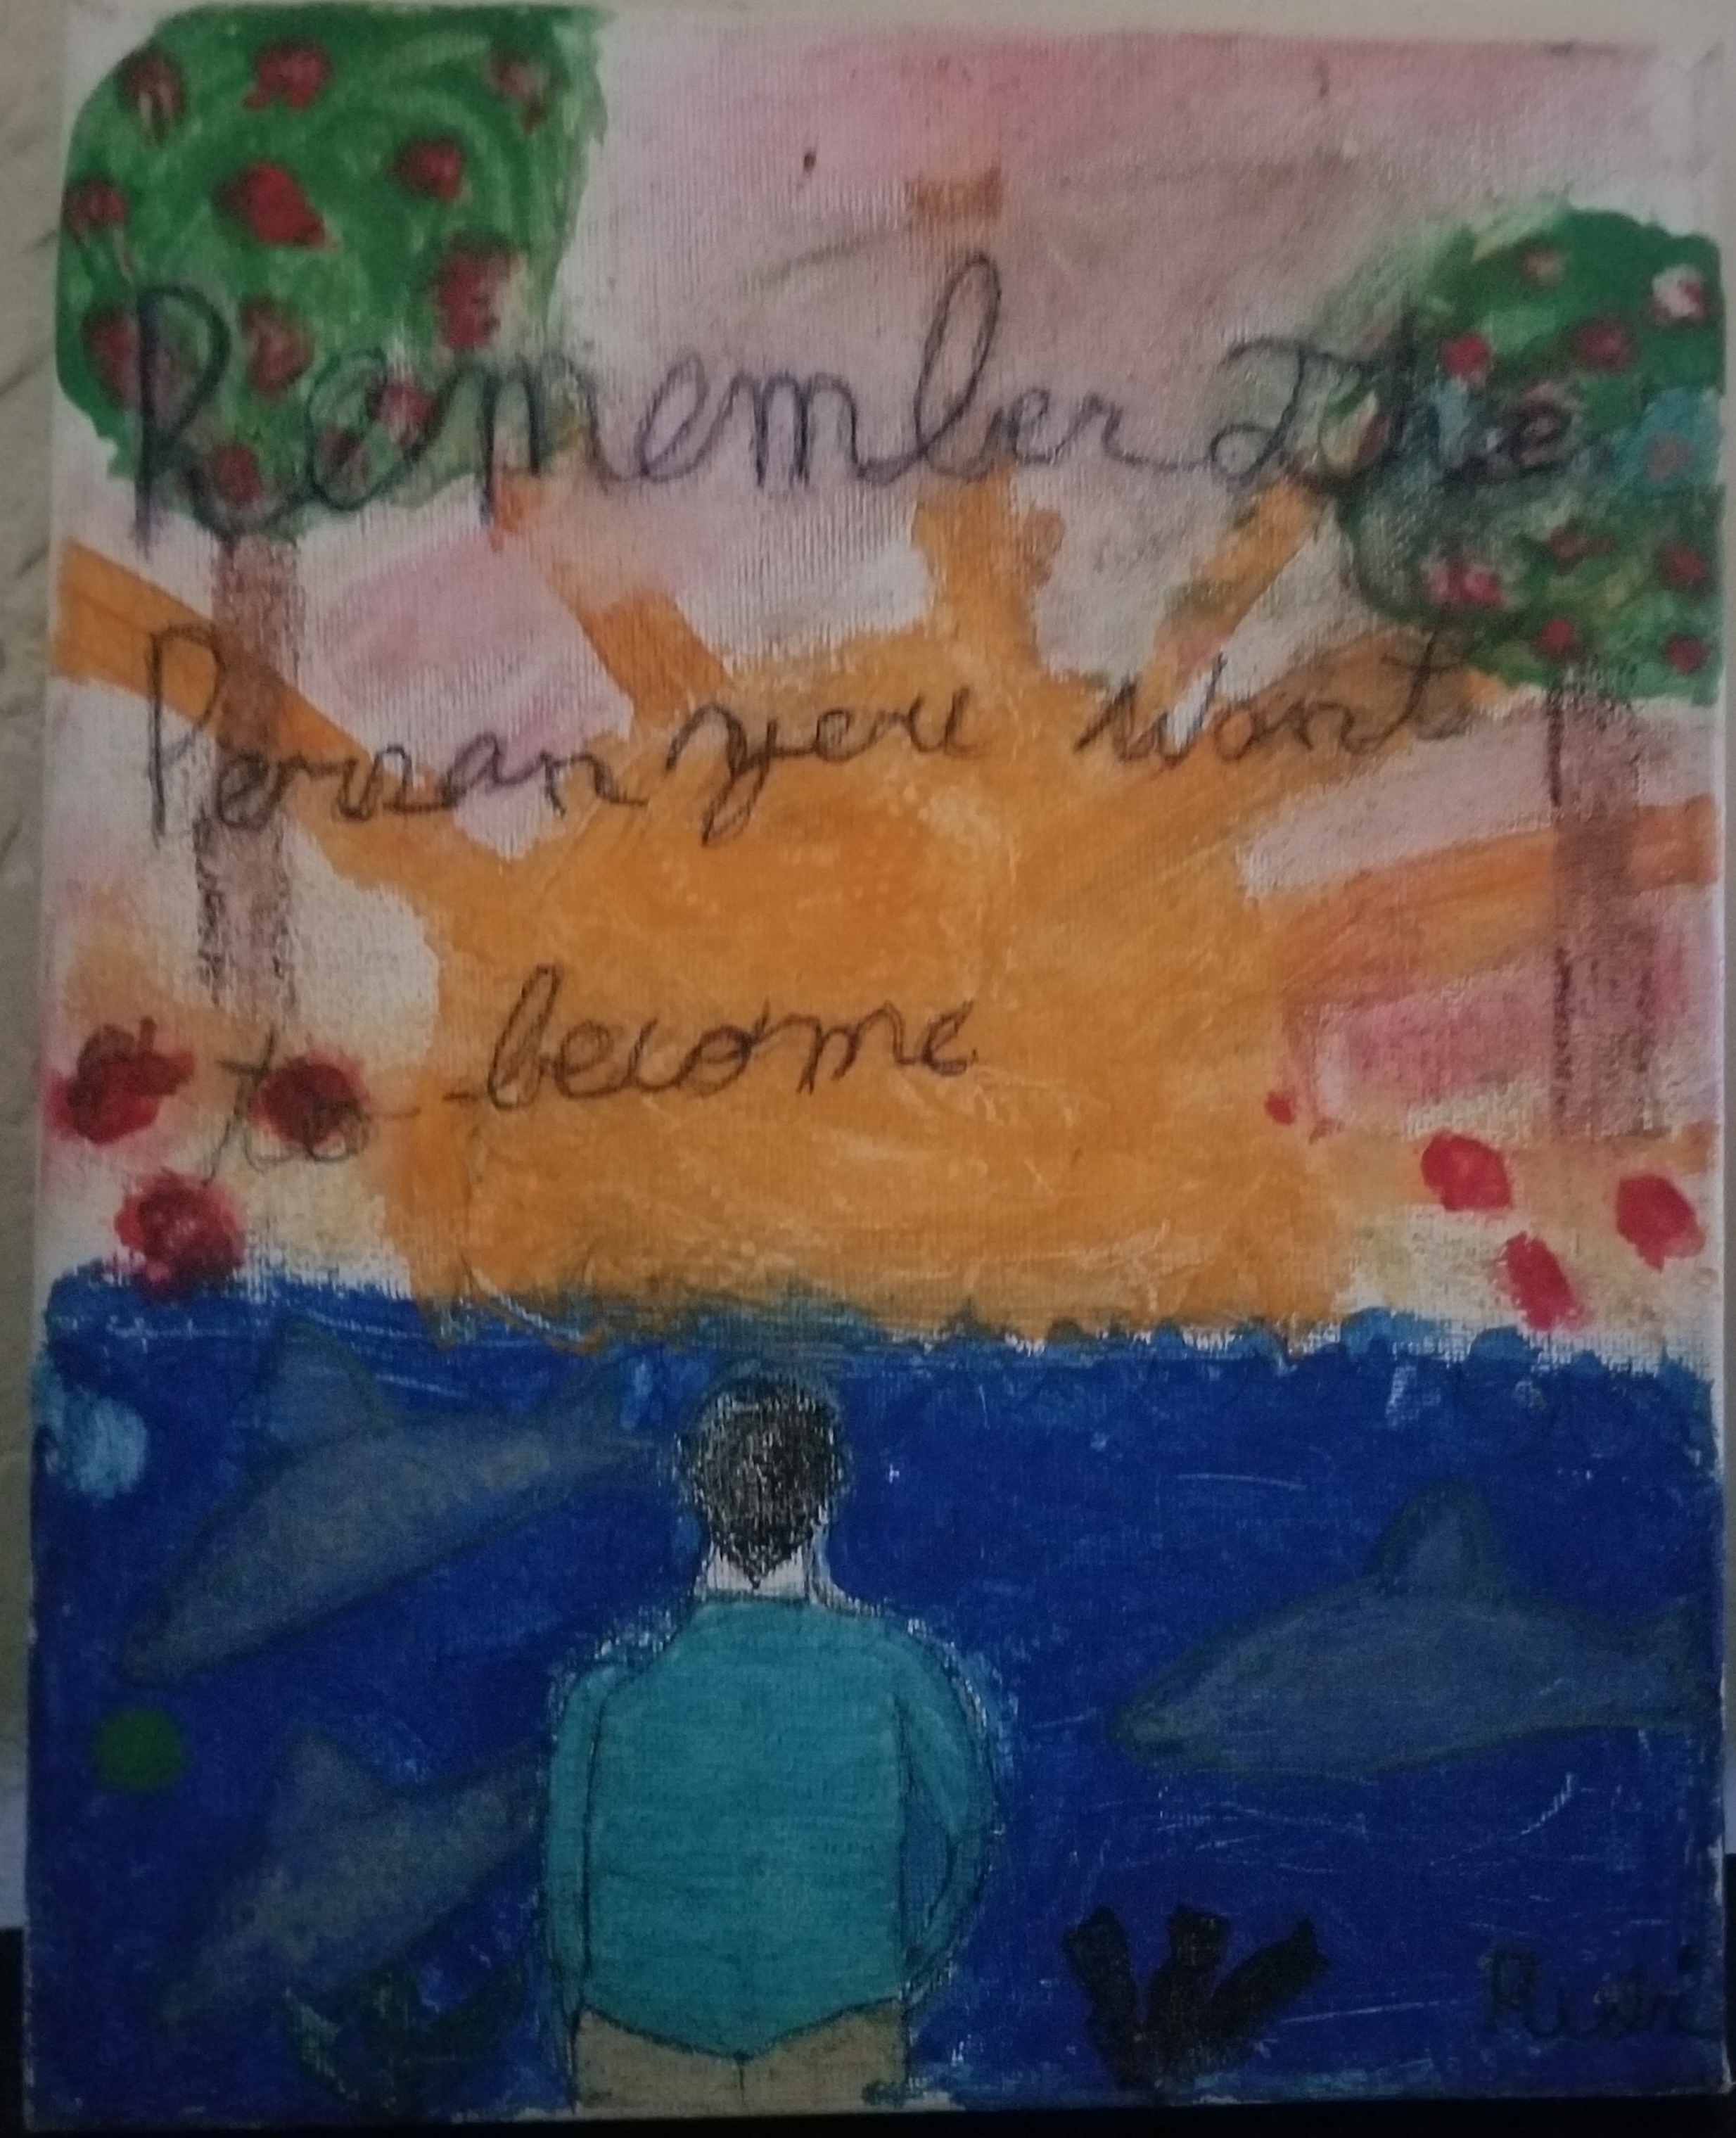 Remember the
Person you want
to become